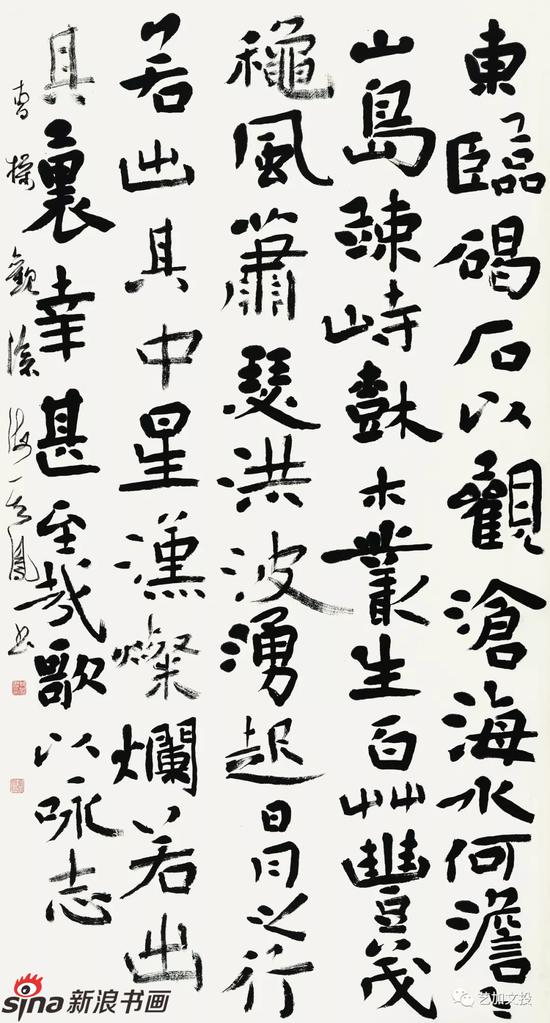 東臨碣石以觀滄海水何澹〻
山島竦峙樹木叢生百艸豐茂
穐風蕭瑟洪波湧起日月之行
若出其中星漢燦爛若出
其裏幸甚至哉歌以咏志
曹操觀滄海
sina新浪书画
艺加文投